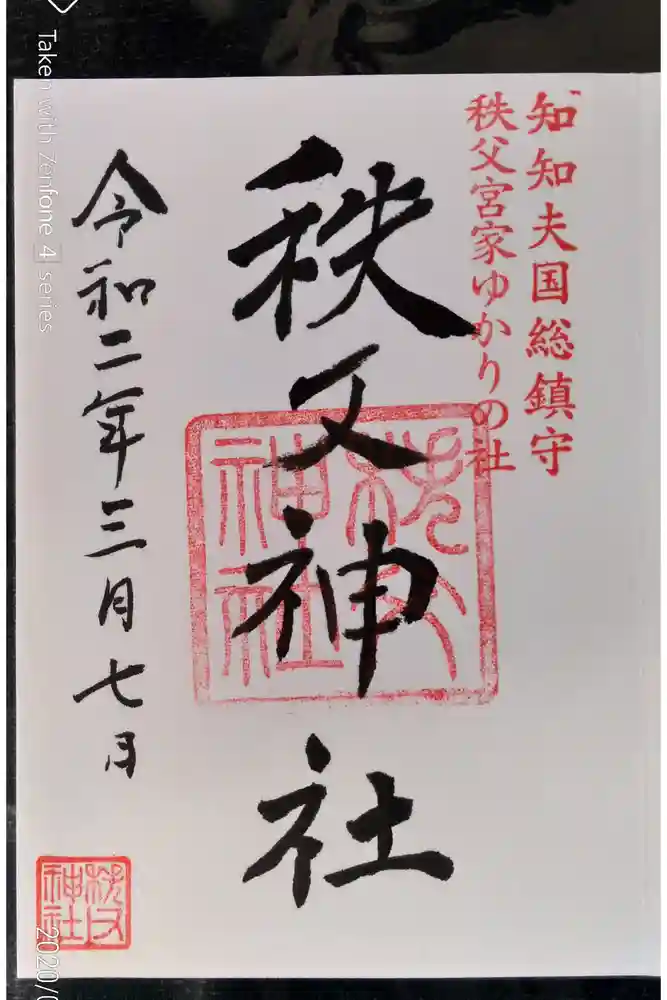 知知夫国総鎮守
秩父宮家ゆかりの社
秩父神社
秩父
神社
令和二年三月七日
秩父
神社
Taken with Zenfone 4 series
2020/0